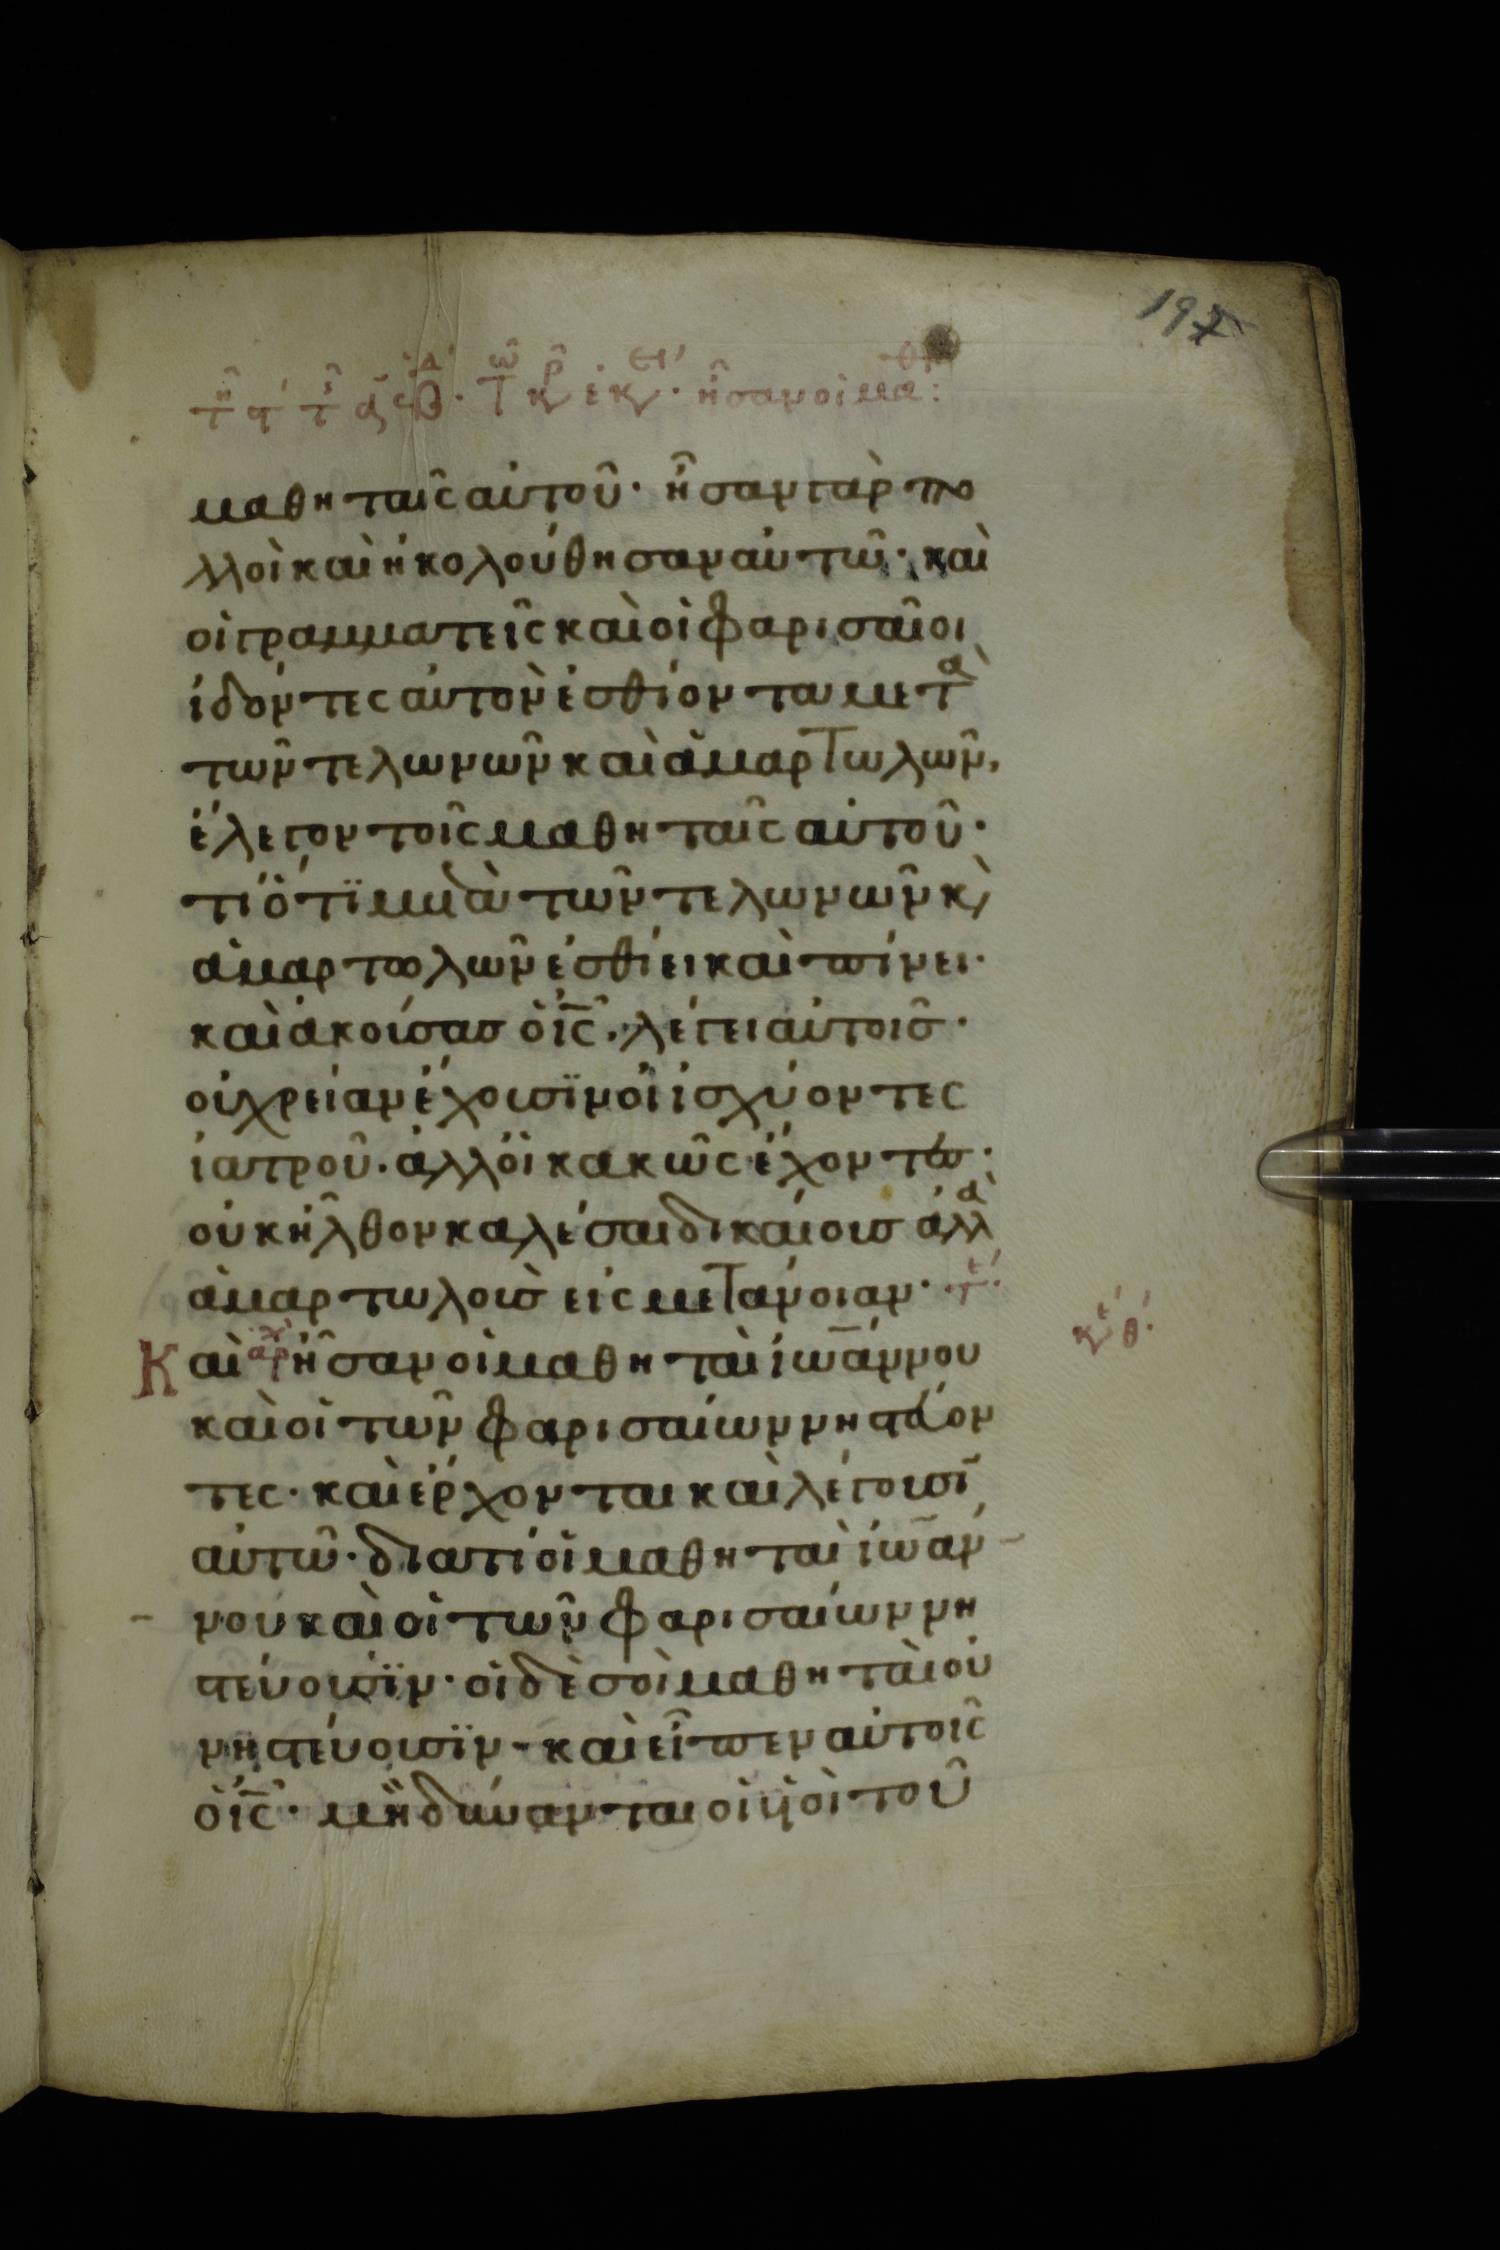 197
τῇ ϛ΄ τῆς ἑβδ. Τῷ κρ ἐκει. ἦσαν οἱ μαθ:
μαθηταῖς αὐτοῦ· ἦσαν γὰρ πο
λλοὶ καὶ ἠκολούθησαν αὐτῶ· καὶ
οἱ γραμματεῖς καὶ οἱ φαρισαῖοι
ἰδόντες αὐτὸν ἐσθίοντα μετὰ
τῶν τελωνῶν καὶ ἁμαρτωλῶν,
ἔλεγον τοῖς μαθηταῖς αὐτοῦ·
τί ὅτϊ μετὰ τῶν τελωνῶν κ(αὶ)
ἁμαρτωλῶν ἐσθίει καὶ πίνει·
καὶ ἀκούσας ὁ ις̅· λέγει αὐτοῖσ·
οὐ χρείαν ἔχουσϊν οἱ ἰσχύοντες
ἰατροῦ· ἀλλ' οἱ κακῶς ἔχοντες·
οὐκ ἦλθον καλέσαι δικαίουσ ἀλλὰ
ἁμαρτωλοὺσ εἰς μετάνοιαν· τε·
Καὶ ἀρχ ἦσαν οἱ μαθηταὶ ἰωάννου
κε θ·
καὶ οἱ τῶν φαρισαίων νηστεύον
τες· καὶ ἔρχονται καὶ λέγουσῒ
αὐτῶ· διατί οἱ μαθηταὶ ἰωάν
νου καὶ οἱ τῶν φαρισαίων νη
στεύουσϊν· οἱ δὲ σοὶ μαθηταὶ οὐ
νηστεύουσϊν· καὶ εἶπεν αὐτοῖς
ὁ ις̅· μὴ δύνανται οἱ υἱοὶ τοῦ